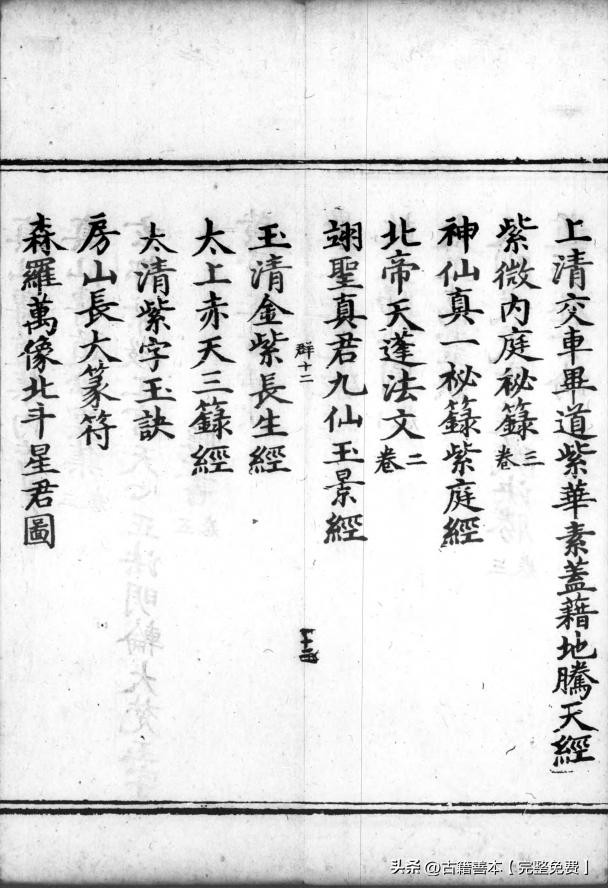 上清交車畢道紫華素蓋藉地騰天經
紫微内庭祕籙三卷
神仙真一祕籙紫庭經
北帝天蓬法文二卷
翊聖真君九仙玉景經
群十二
玉清金紫長生經
太上赤天三籙經
太清紫字玉訣
房山長大篆符
森羅萬像北斗星君圖
头条 @古籍善本【完整免费】